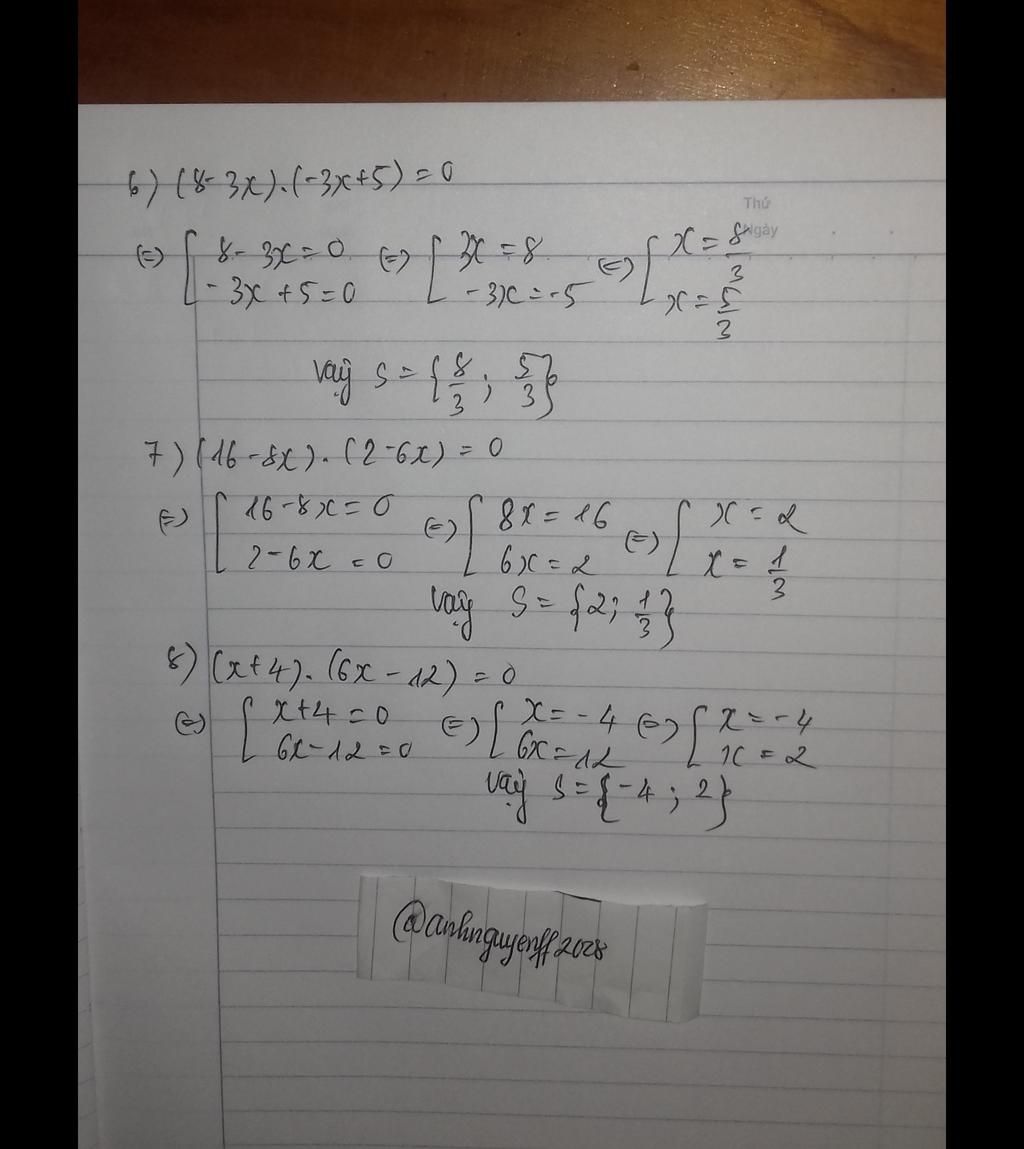 Thứ
Ngày
6) (8-3x).(-3x+5) = 0
(=) [ 8-3x=0 (=) [ 3x=8 (=) [ x=8/3
-3x+5=0 -3x=-5 x=5/3
Vậy S = {8/3; 5/3}
7) (16-8x).(2-6x) = 0
(=) [ 16-8x=0 (=) [ 8x=16 (=) [ x=2
2-6x=0 6x=2 x=1/3
Vậy S = {2; 1/3}
8) (x+4).(6x-12) = 0
(=) [ x+4=0 (=) [ x=-4 (=) [ x=-4
6x-12=0 6x=12 x=2
Vậy S = {-4; 2}
@anhnguyenff2028